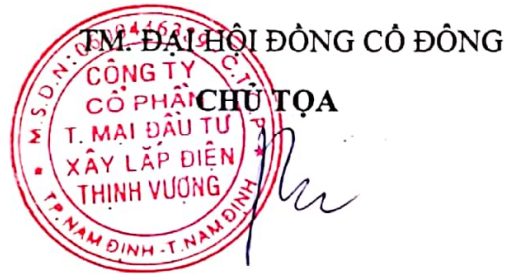 TM. ĐẠI HỘI ĐỒNG CỔ ĐÔNG
CHỦ TỌA
CÔNG TY
CỔ PHẦN
T. MẠI ĐẦU TƯ
XÂY LẮP ĐIỆN
THỊNH VƯỢNG
TP. NAM ĐỊNH - T. NAM ĐỊNH